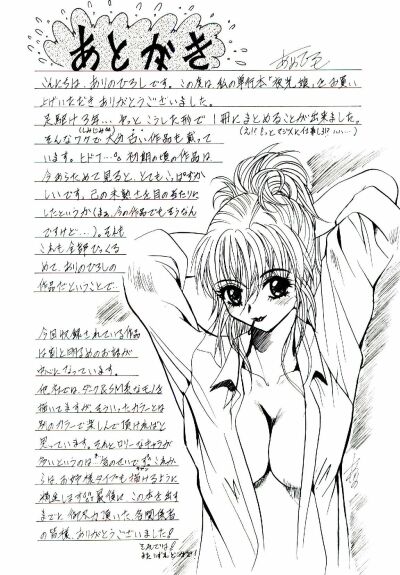 あとがき
こんにちは、ありのひろしです。この度は、私の単行本「夜光娘」をお買い
上げいただき ありがとうございました。
足駆け3年… やっと こうした形で 1冊にまとめることが出来ました。
そんなワケで 大分 古い作品も 載って
います。ヒドイ…。初期の頃の作品は、
今あらためて見ると、とてもこっぱずか
しいです。己の未熟さを目の当たりに
したというか(まぁ、今の作品でもそうなん
ですけど…)。でも
これも全部ひっくる
めて、ありのひろしの
作品だということで…
今回収録されている作品
は割と明るめのお話が
中心になっています。
他社では、ダーク&SM系なモノを
描いてますが、そういったカラーとは
別のカラーで楽しんで頂ければと
思っています。それとロリーなキャラが
多いというのは 気のせいです。これか
らは、お姉様タイプも描けるように
精進します。最後に この本を出す
までに 御尽力頂いた、各関係者
の皆様、ありがとうございました!
それでは!